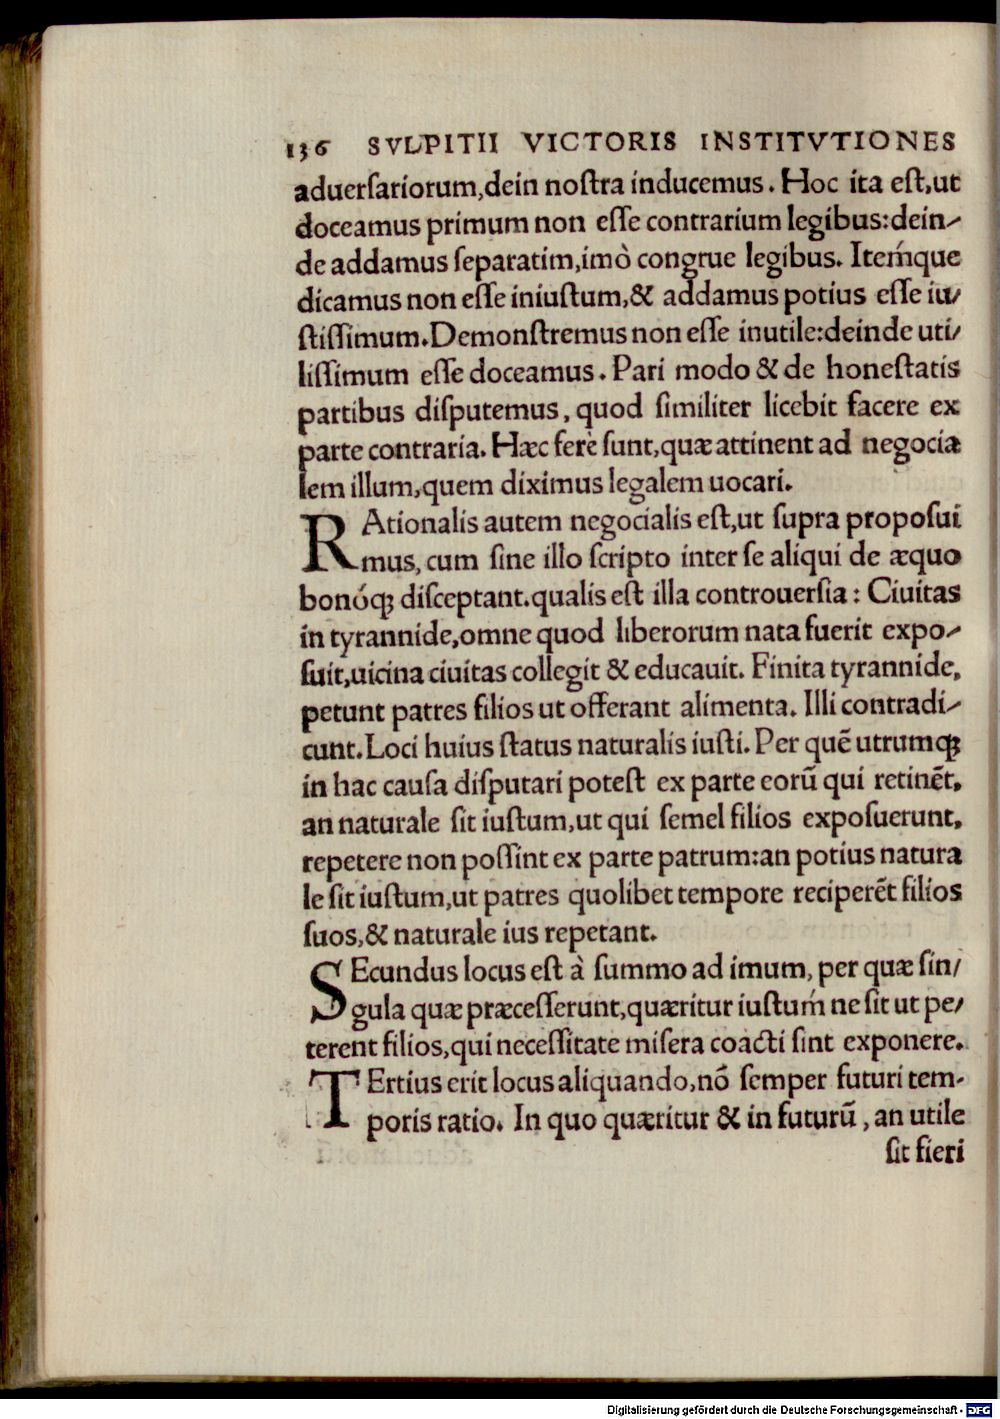 136 SVLPITII VICTORIS INSTITVTIONES
aduerſariorum,dein noſtra inducemus. Hoc ita eſt,ut
doceamus primum non eſſe contrarium legibus:dein⸗
de addamus ſeparatim,imò congrue legibus. Iteḿque
dicamus non eſſe iniuſtum,& addamus potius eſſe iu⸗
ſtiſſimum.Demonſtremus non eſſe inutile:deinde uti⸗
liſſimum eſſe doceamus. Pari modo & de honeſtatis
partibus diſputemus, quod ſimiliter licebit facere ex
parte contraria. Hæc ferè ſunt,quæ attinent ad negocia
lem illum,quem diximus legalem uocari.
RAtionalis autem negocialis eſt,ut ſupra propoſui
mus, cum ſine illo ſcripto inter ſe aliqui de æquo
bonóq; diſceptant.qualis eſt illa controuerſia: Ciuitas
in tyrannide,omne quod liberorum nata fuerit expo⸗
ſuit,uicina ciuitas collegit & educauit. Finita tyrannide,
petunt patres filios ut offerant alimenta. Illi contradi⸗
cunt.Loci huius ſtatus naturalis iuſti. Per quē utrumq;
in hac cauſa diſputari poteſt ex parte eorū qui retinēt,
an naturale ſit iuſtum,ut qui ſemel filios expoſuerunt,
repetere non poſſint ex parte patrum:an potius natura
le ſit iuſtum,ut patres quolibet tempore reciperēt filios
ſuos,& naturale ius repetant.
SEcundus locus eſt à ſummo ad imum, per quæ ſin⸗
gula quæ præceſſerunt,quæritur iuſtuḿ ne ſit ut pe⸗
terent filios,qui neceſſitate miſera coacti ſint exponere.
TErtius erit locus aliquando,nō ſemper futuri tem-
poris ratio. In quo quæritur & in futurū, an utile
ſit fieri
Digitalisierung gefördert durch die Deutsche Forschungsgemeinschaft - DFG